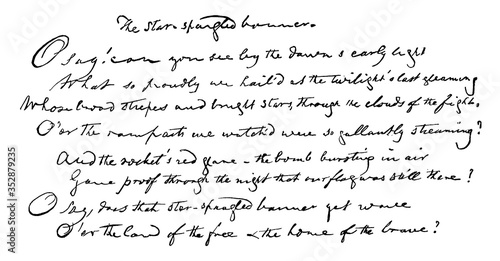 The star-spangled banner.
O say! can you see by the dawn's early light
What so proudly we hail'd at the twilight's last gleaming
Whose broad stripes and bright stars, through the clouds of the fight,
O'er the ramparts we watch'd were so gallantly streaming?
And the rocket's red glare - the bomb bursting in air
Gave proof through the night that our flag was still there?
O say, does that star-spangled banner yet wave
O'er the land of the free & the home of the brave?
352879235
Adobe Stock